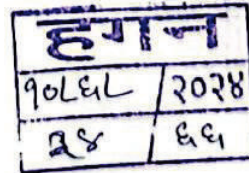 हगन
१०८६८ २०२४
३४ ६६